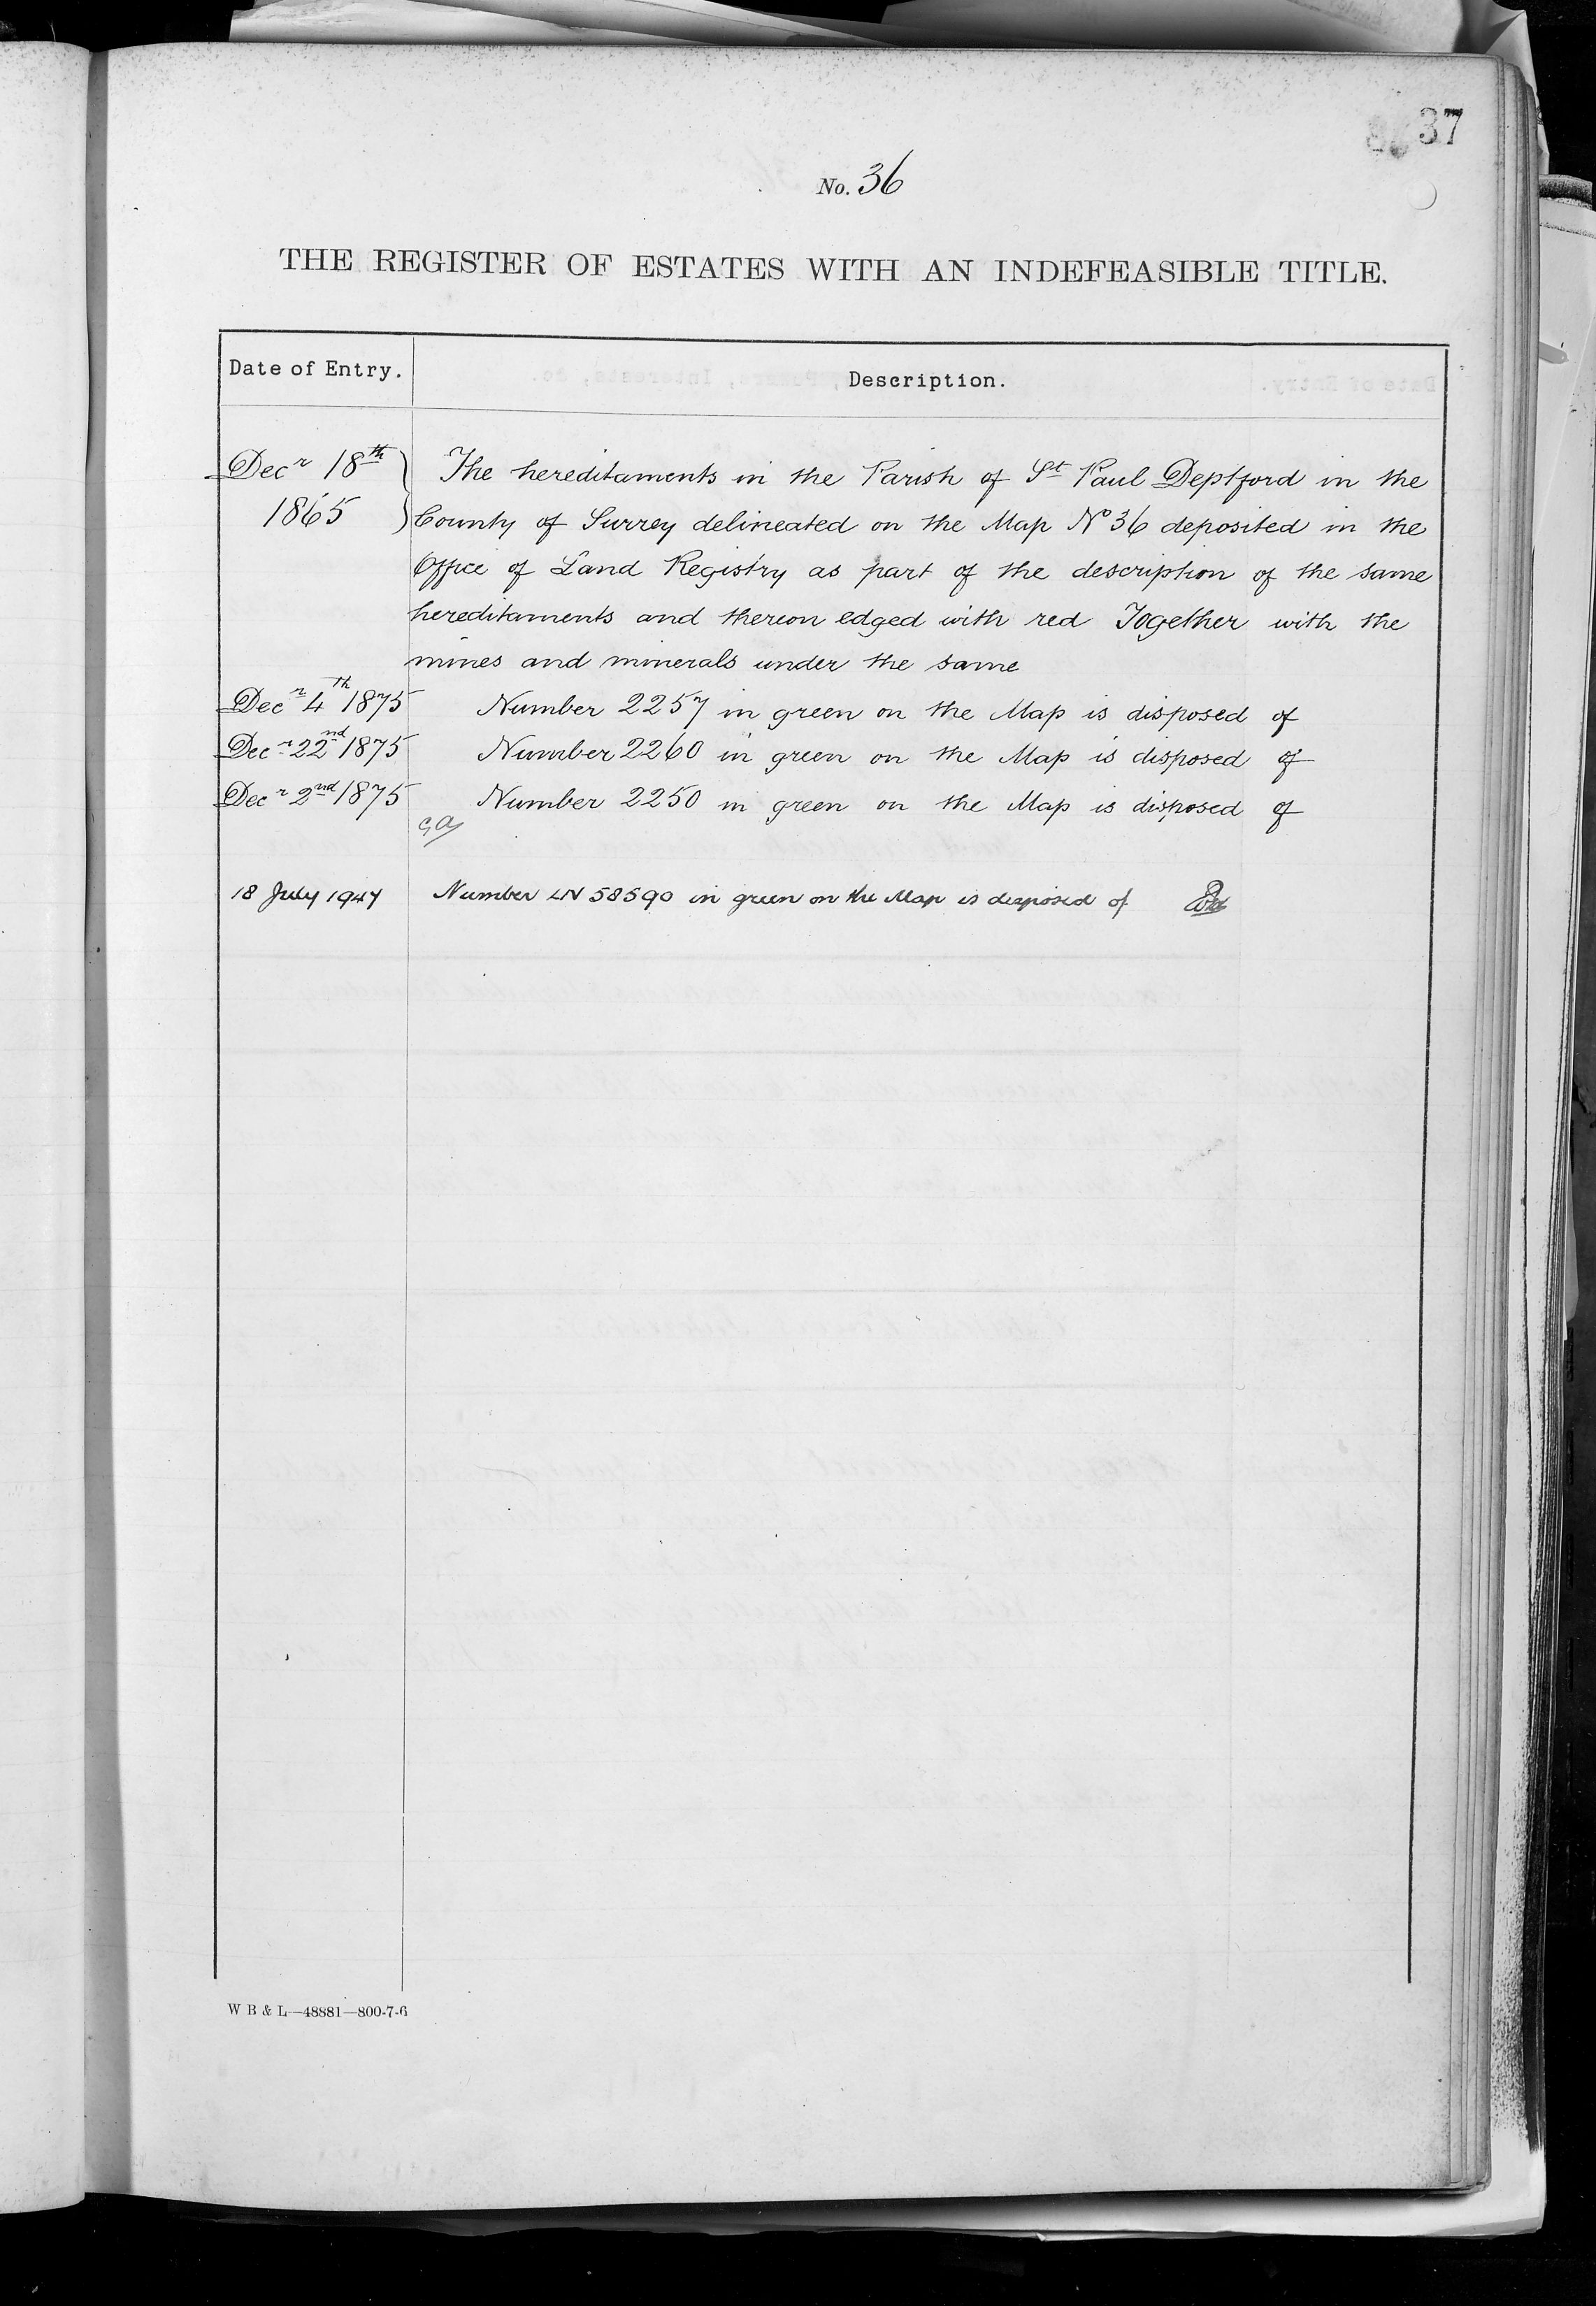 37
No. 36
THE REGISTER OF ESTATES WITH AN INDEFEASIBLE TITLE.
Date of Entry. Description.
Decr 18th The hereditaments in the Parish of St Paul Deptford in the
1865 County of Surrey delineated on the Map No 36 deposited in the
Office of Land Registry as part of the description of the same
hereditaments and thereon edged with red Together with the
mines and minerals under the same
Decr 4th 1875 Number 2257 in green on the Map is disposed of
Decr 22nd 1875 Number 2260 in green on the Map is disposed of
Decr 2nd 1875 Number 2250 in green on the Map is disposed of
18 July 1947 Number LN 58590 in green on the Map is disposed of
W B & L—48881—800-7-6